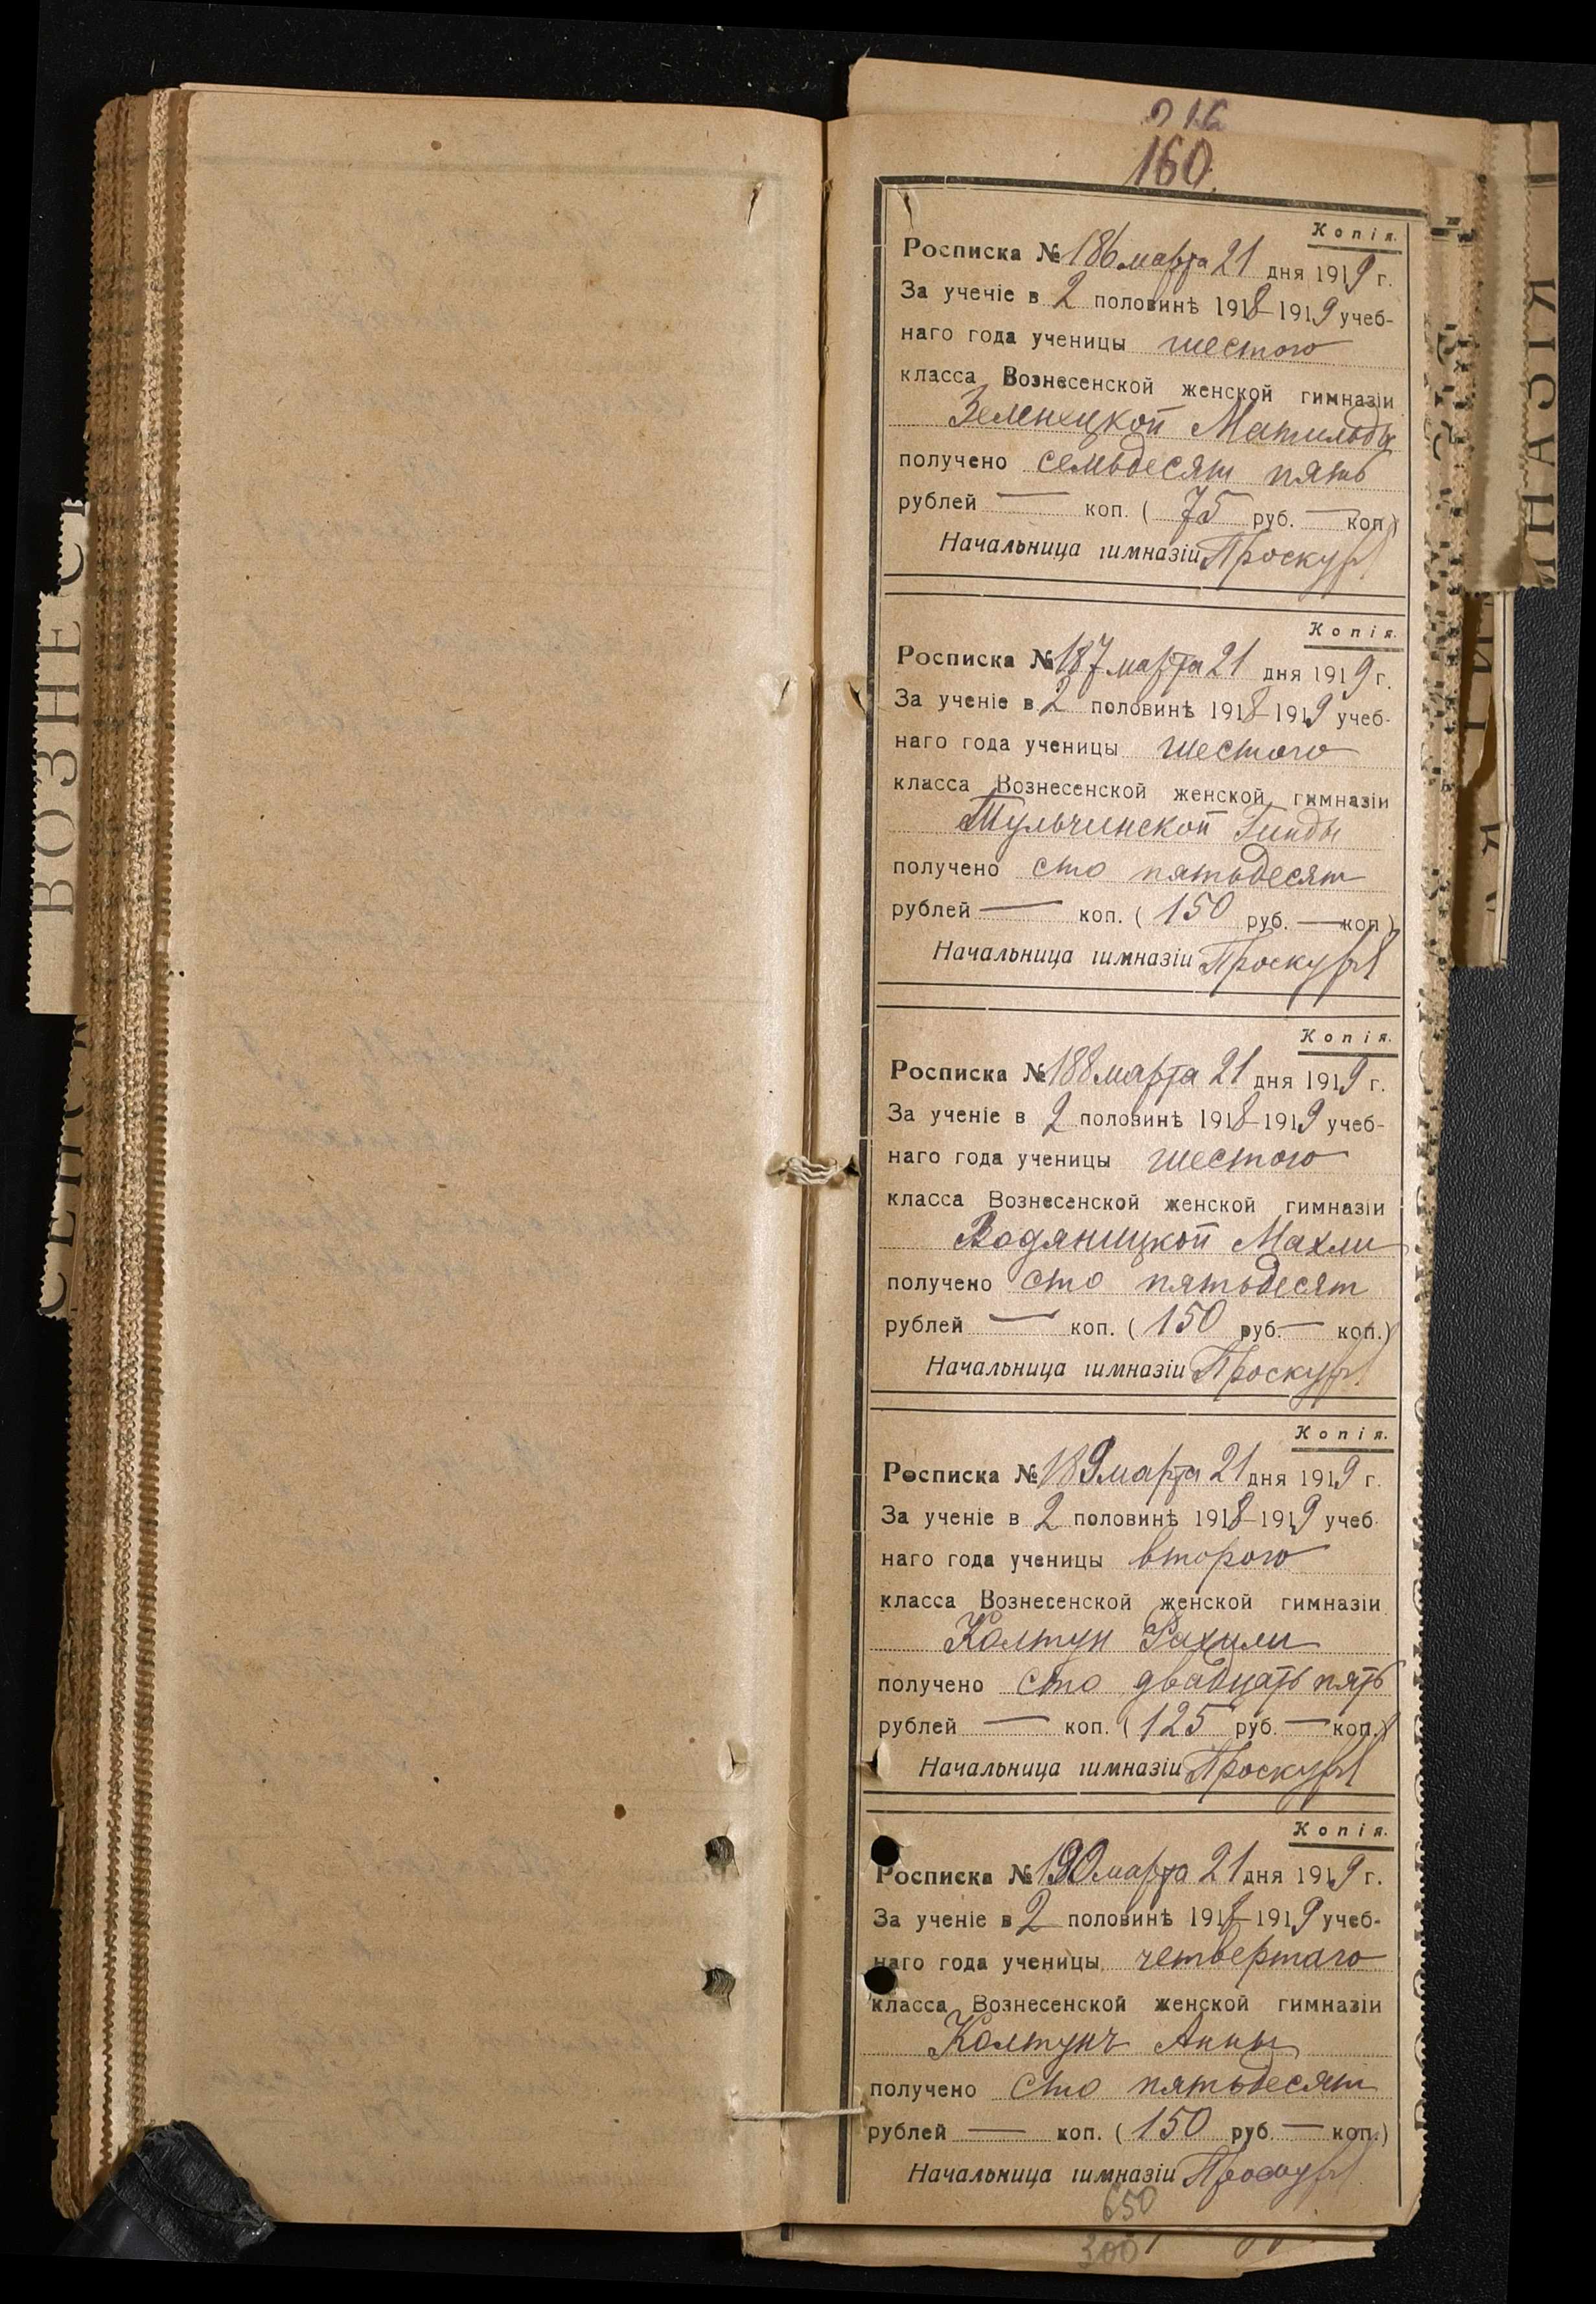 160.
Копія.
Росписка № 186 марта 21 дня 1919 г.
За ученіе в 2 половинѣ 1918-1919 учеб-
наго года ученицы шестого
класса Вознесенской женской гимназіи
Матильды
получено семьдесят пять
рублей — коп. ( 75 руб. — коп.)
Начальница гимназіи
Копія.
Росписка № 187 марта 21 дня 1919 г.
За ученіе в 2 половинѣ 1918-1919 учеб-
наго года ученицы шестого
класса Вознесенской женской гимназіи
Тульчинской Гинды
получено сто пятьдесят
рублей — коп. ( 150 руб. — коп.)
Начальница гимназіи
Копія.
Росписка № 188 марта 21 дня 1919 г.
За ученіе в 2 половинѣ 1918-1919 учеб-
наго года ученицы шестого
класса Вознесенской женской гимназіи
Водяницкой Махли
получено сто пятьдесят
рублей — коп. ( 150 руб. — коп.)
Начальница гимназіи
Копія.
Росписка № 189 марта 21 дня 1919 г.
За ученіе в 2 половинѣ 1918-1919 учеб-
наго года ученицы второго
класса Вознесенской женской гимназіи
Колтун Рахили
получено сто двадцать пять
рублей — коп. ( 125 руб. — коп.)
Начальница гимназіи
Копія.
Росписка № 190 марта 21 дня 1919 г.
За ученіе в 2 половинѣ 1918-1919 учеб-
наго года ученицы четвертаго
класса Вознесенской женской гимназіи
Колтунъ Анны
получено сто пятьдесят
рублей — коп. ( 150 руб. — коп.)
Начальница гимназіи
650
300
ВОЗНЕС